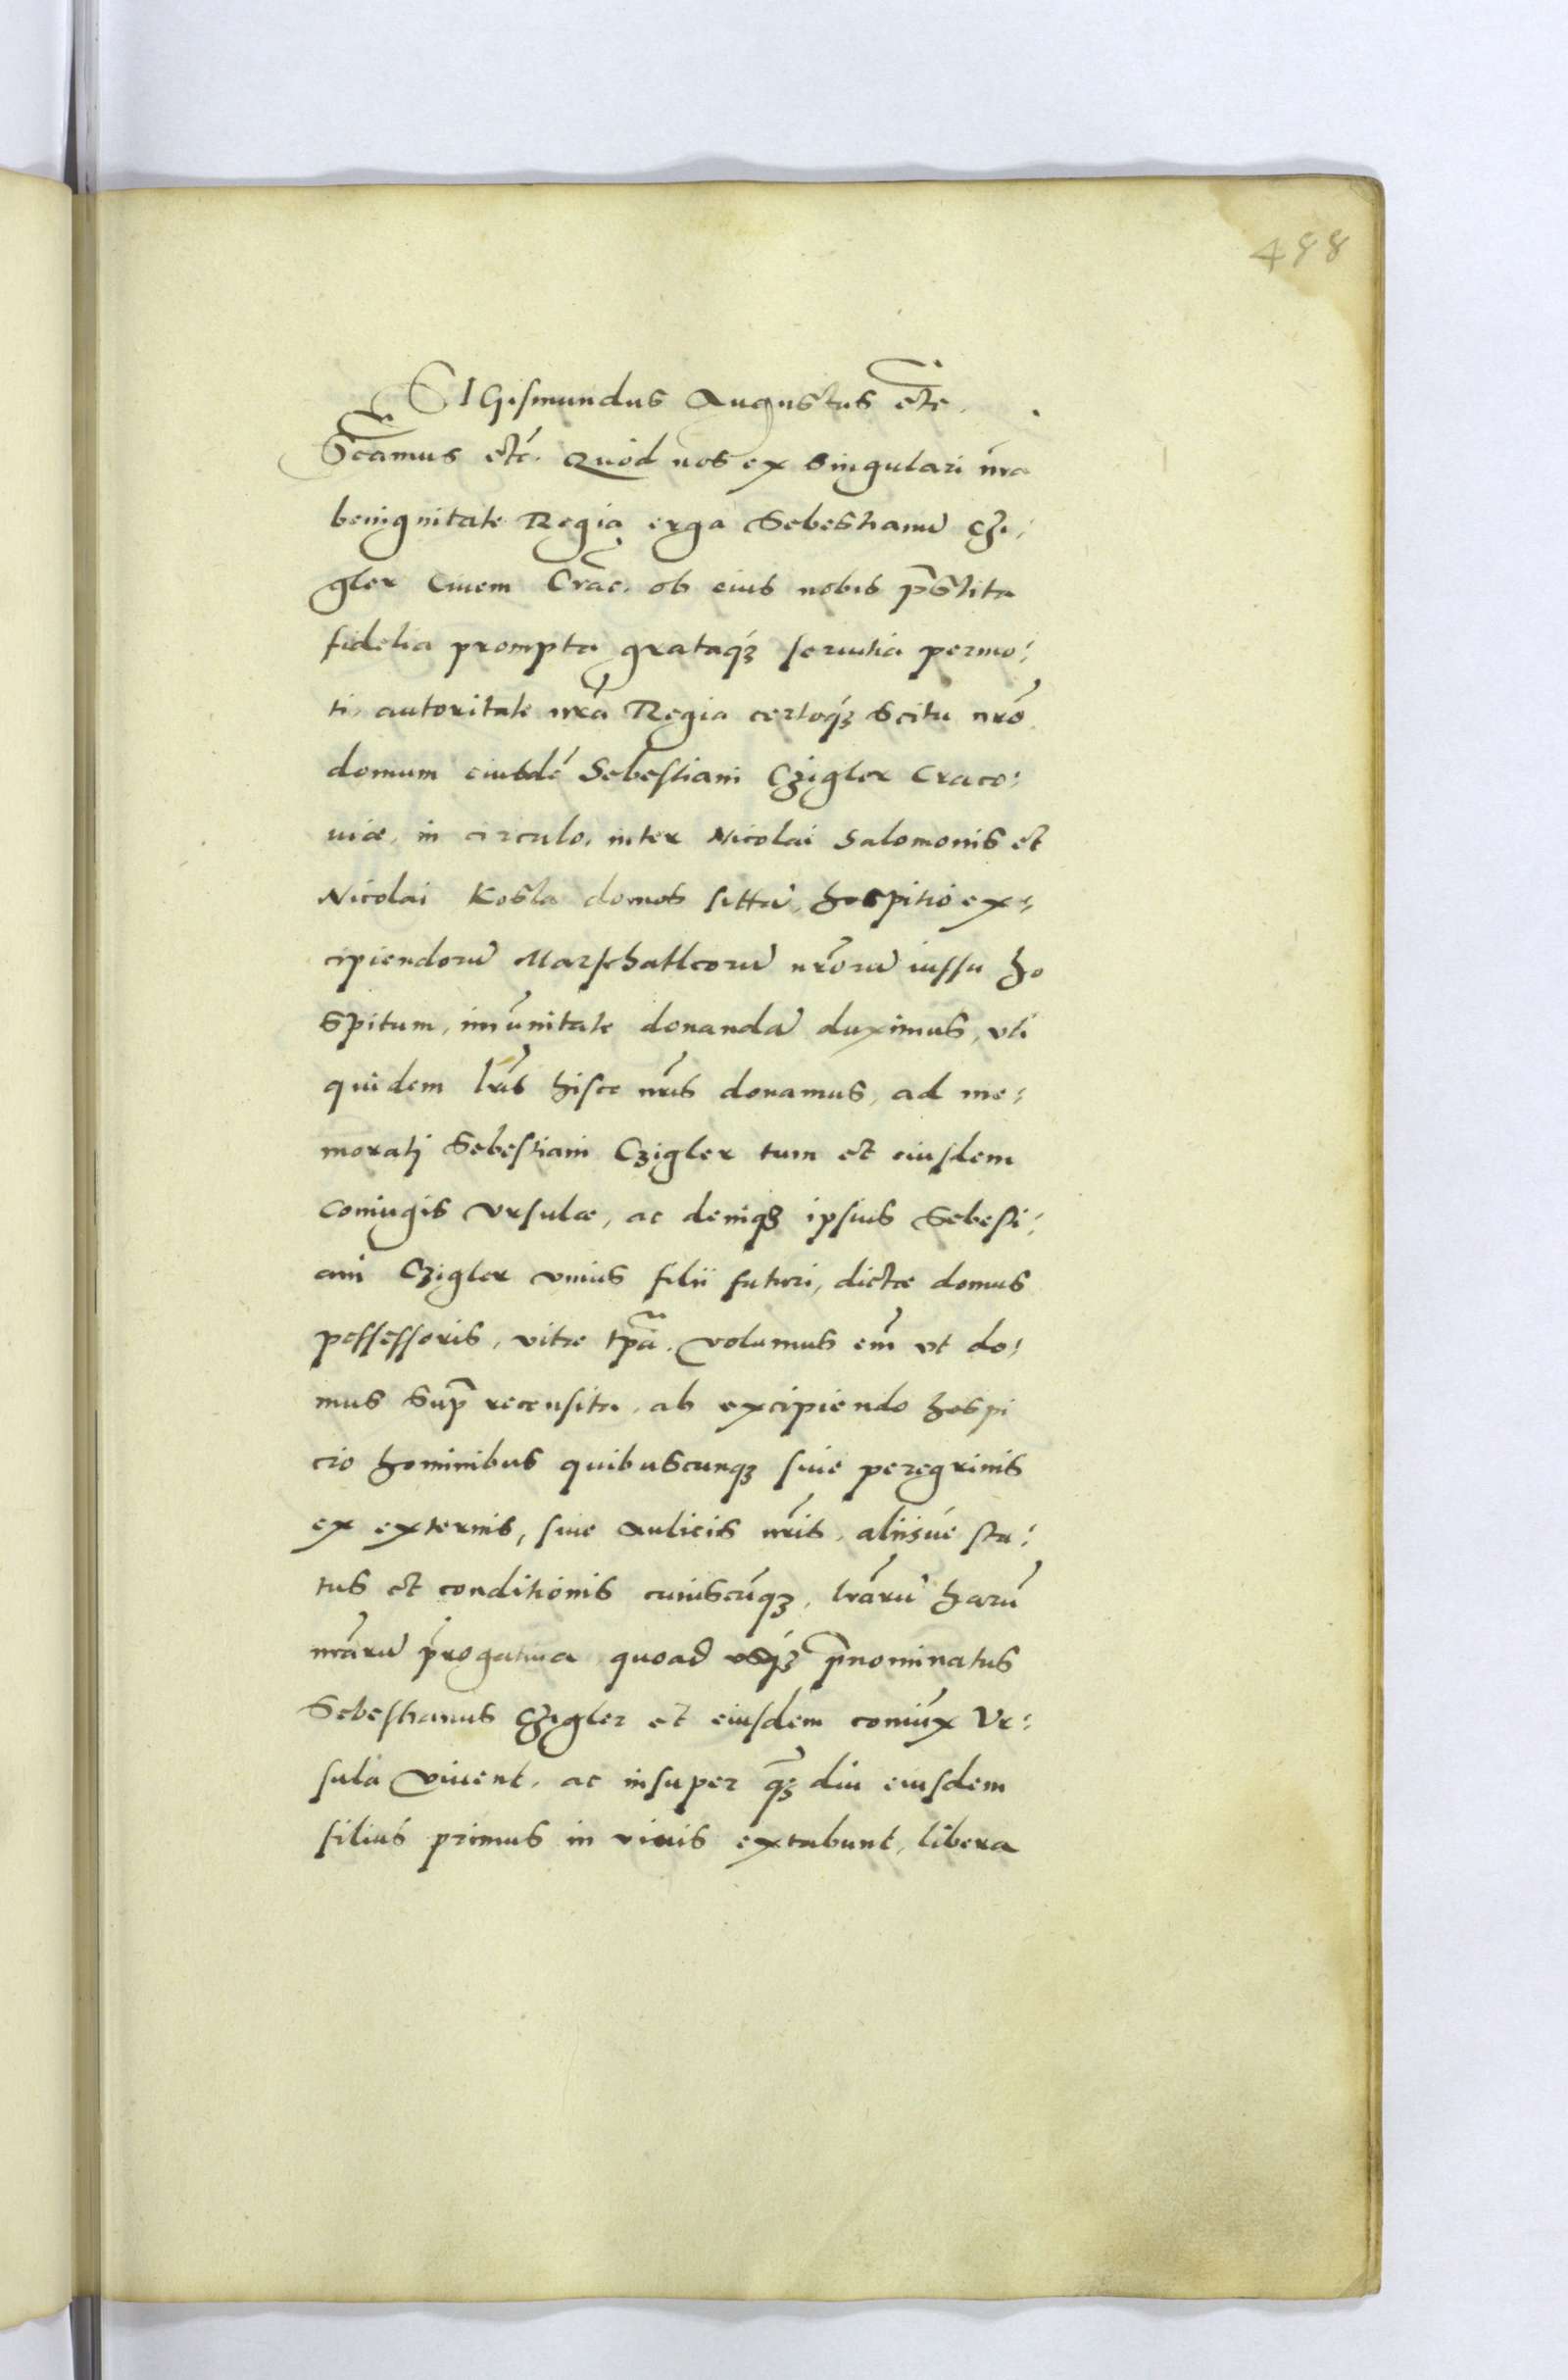 488
SIGismundus Augustus etc.
Scamus etc. Quod nos ex singulari nra
benignitate Regia erga Sebestianu Czi:
gler Ciuem Crac. ob eius nobis pstita
fidelia prompta grataq seruitia permo:
ti, autoritate nra Regia certoq scitu nro
domum eiusdē Sebestiani Czigler Craco:
uiæ, in circulo, inter Nicolai Salomonis et
Nicolai Kosla domos sitta, hospitio ex:
cipiendorū Marschallcorū nrorū iussu ho
spitum, imūnitate donandā duximus, vti
quidem lris hisce nris donamus, ad me:
moratj Sebestiani Czigler tum et eiusdem
coniugis Vrsulæ, ac deniq ipsius Sebesti:
ani Czigler vnius filii futuri, dictæ domus
possessoris, vitæ tpa. Volumus em vt do:
mus sup recensita, ab excipiendo hospi
cio hominibus quibuscunq siue peregrinis
ex externis, siue Aulicis nris, aliisue sta:
tus et conditionis cuiuscūq, lrarū harū
nrarū progatiua quoad usq pnominatus
Sebestianus Czigler et eiusdem coniūx Vr:
sula viuent, ac insuper q diu eiusdem
filius primus in viuis extabunt, libera